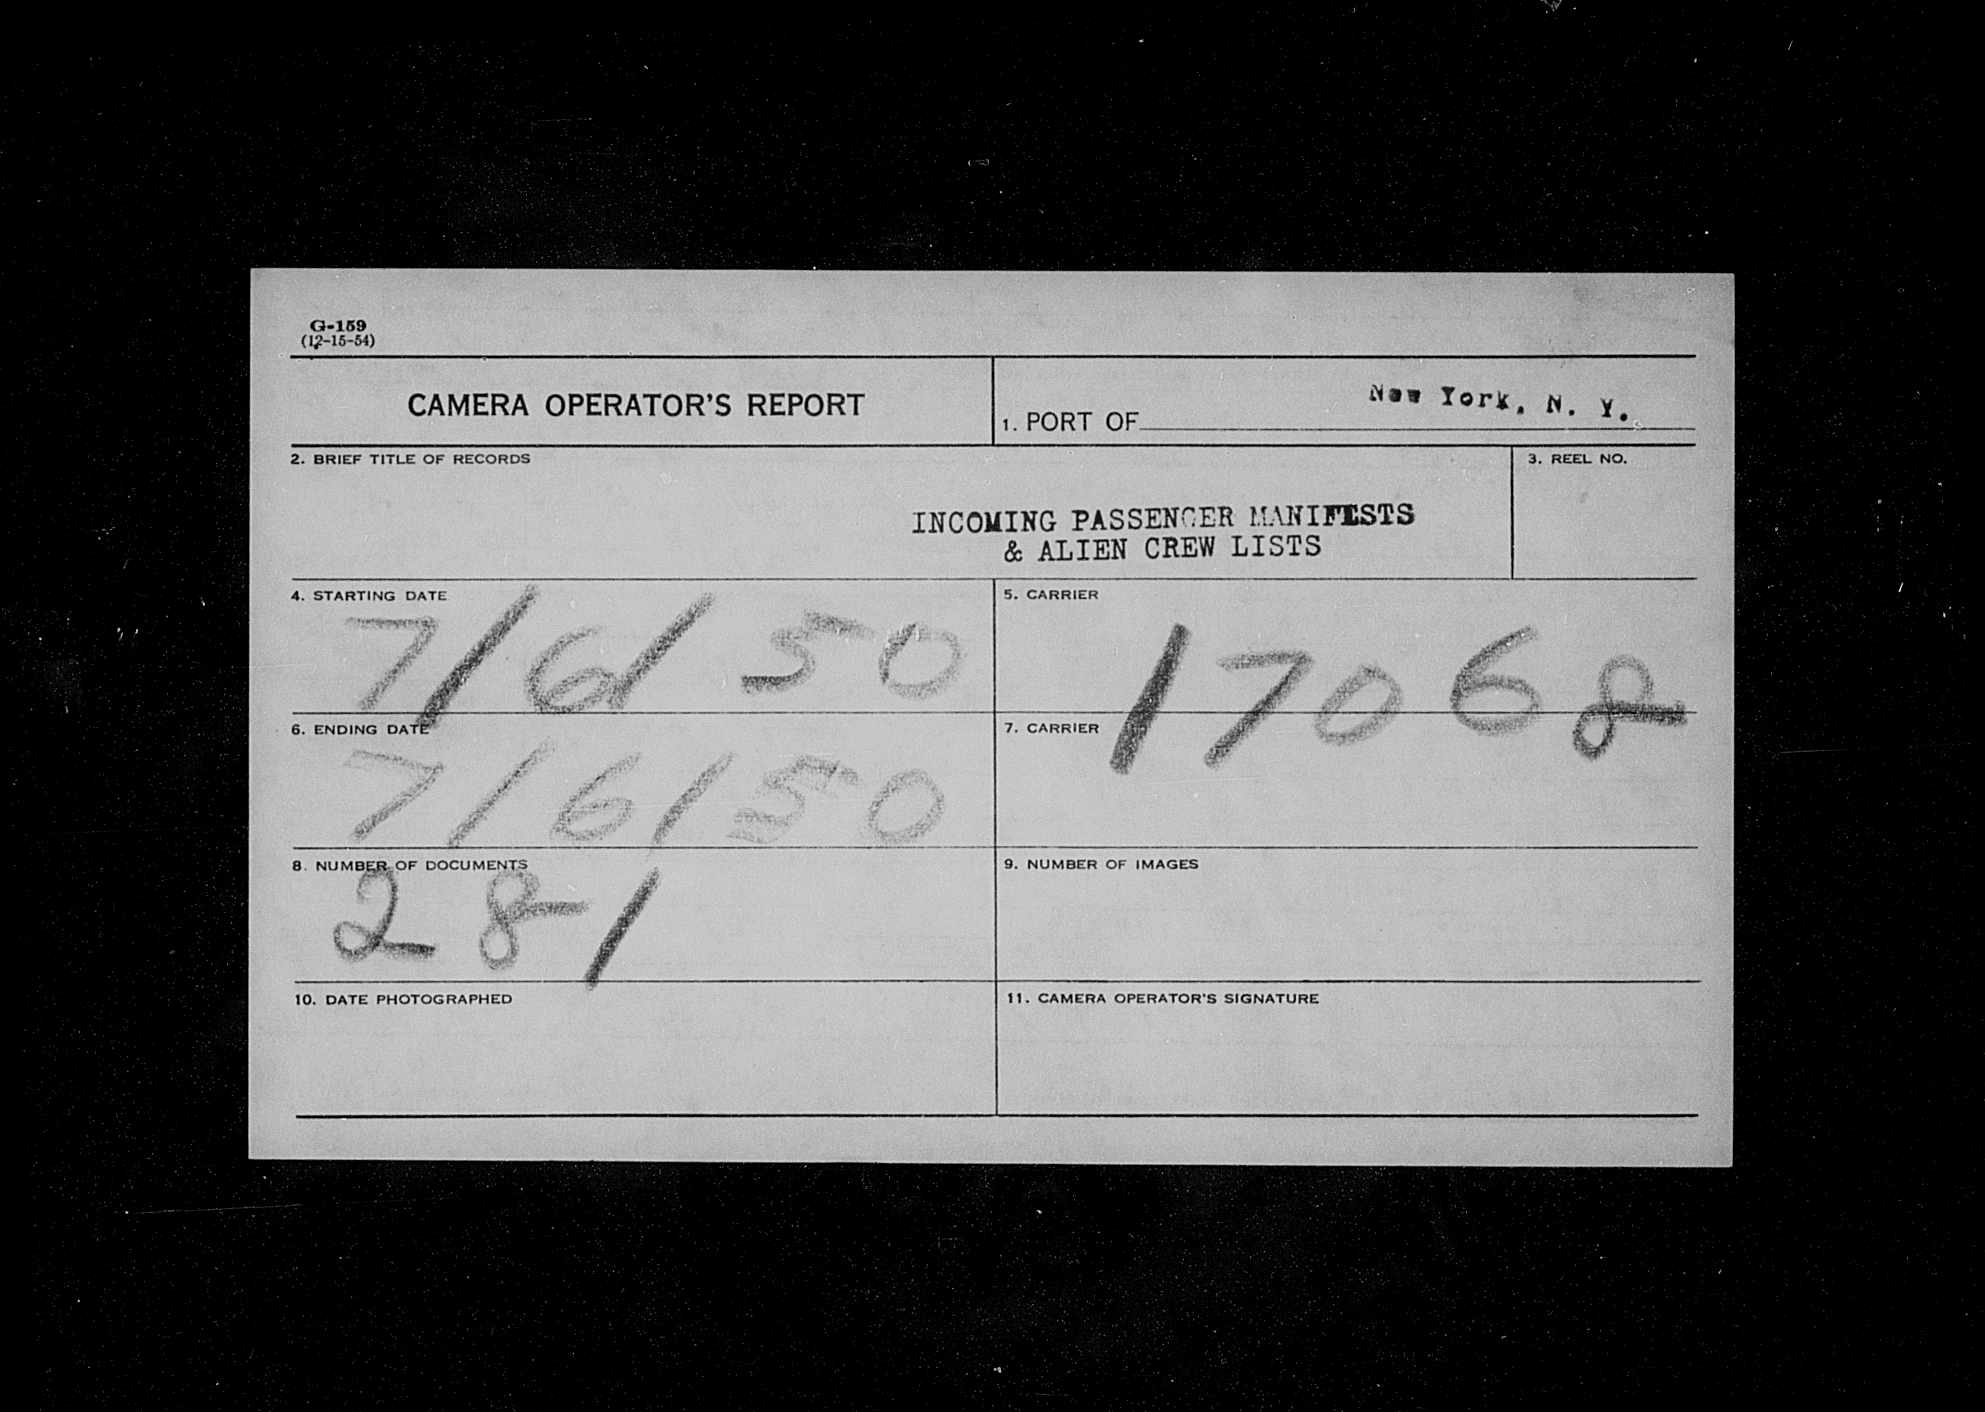 G-159
(12-15-54)
CAMERA OPERATOR'S REPORT
1. PORT OF New York, N. Y.
2. BRIEF TITLE OF RECORDS
3. REEL NO.
INCOMING PASSENGER MANIFESTS
& ALIEN CREW LISTS
4. STARTING DATE
7/6/50
5. CARRIER
17068
6. ENDING DATE
7/6/50
7. CARRIER
8. NUMBER OF DOCUMENTS
281
9. NUMBER OF IMAGES
10. DATE PHOTOGRAPHED
11. CAMERA OPERATOR'S SIGNATURE